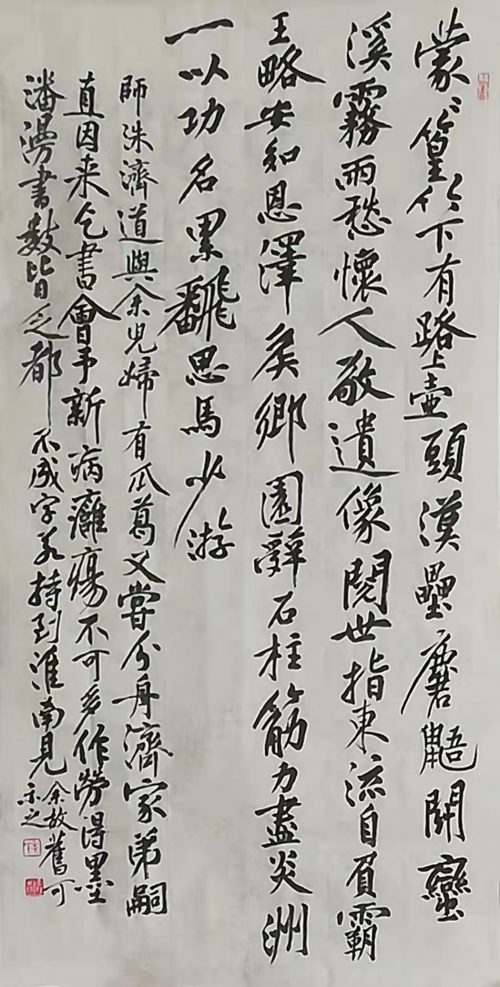 蒙〻篁竹下有路上壺頭漢壘麏鼯鬭蠻
溪霧雨愁懷人敬遺像閱世指東流自負霸
王略安知恩澤矦鄉園辭石柱筋力盡炎洲
一以功名累飜思馬少游
師洙濟道與余兒婦有瓜葛又嘗分舟濟家弟嗣
直因来乞書會予新病癰瘍不可多作勞得墨
瀋漫書數皆乏都不成字若持到淮南見
余故舊可
示之